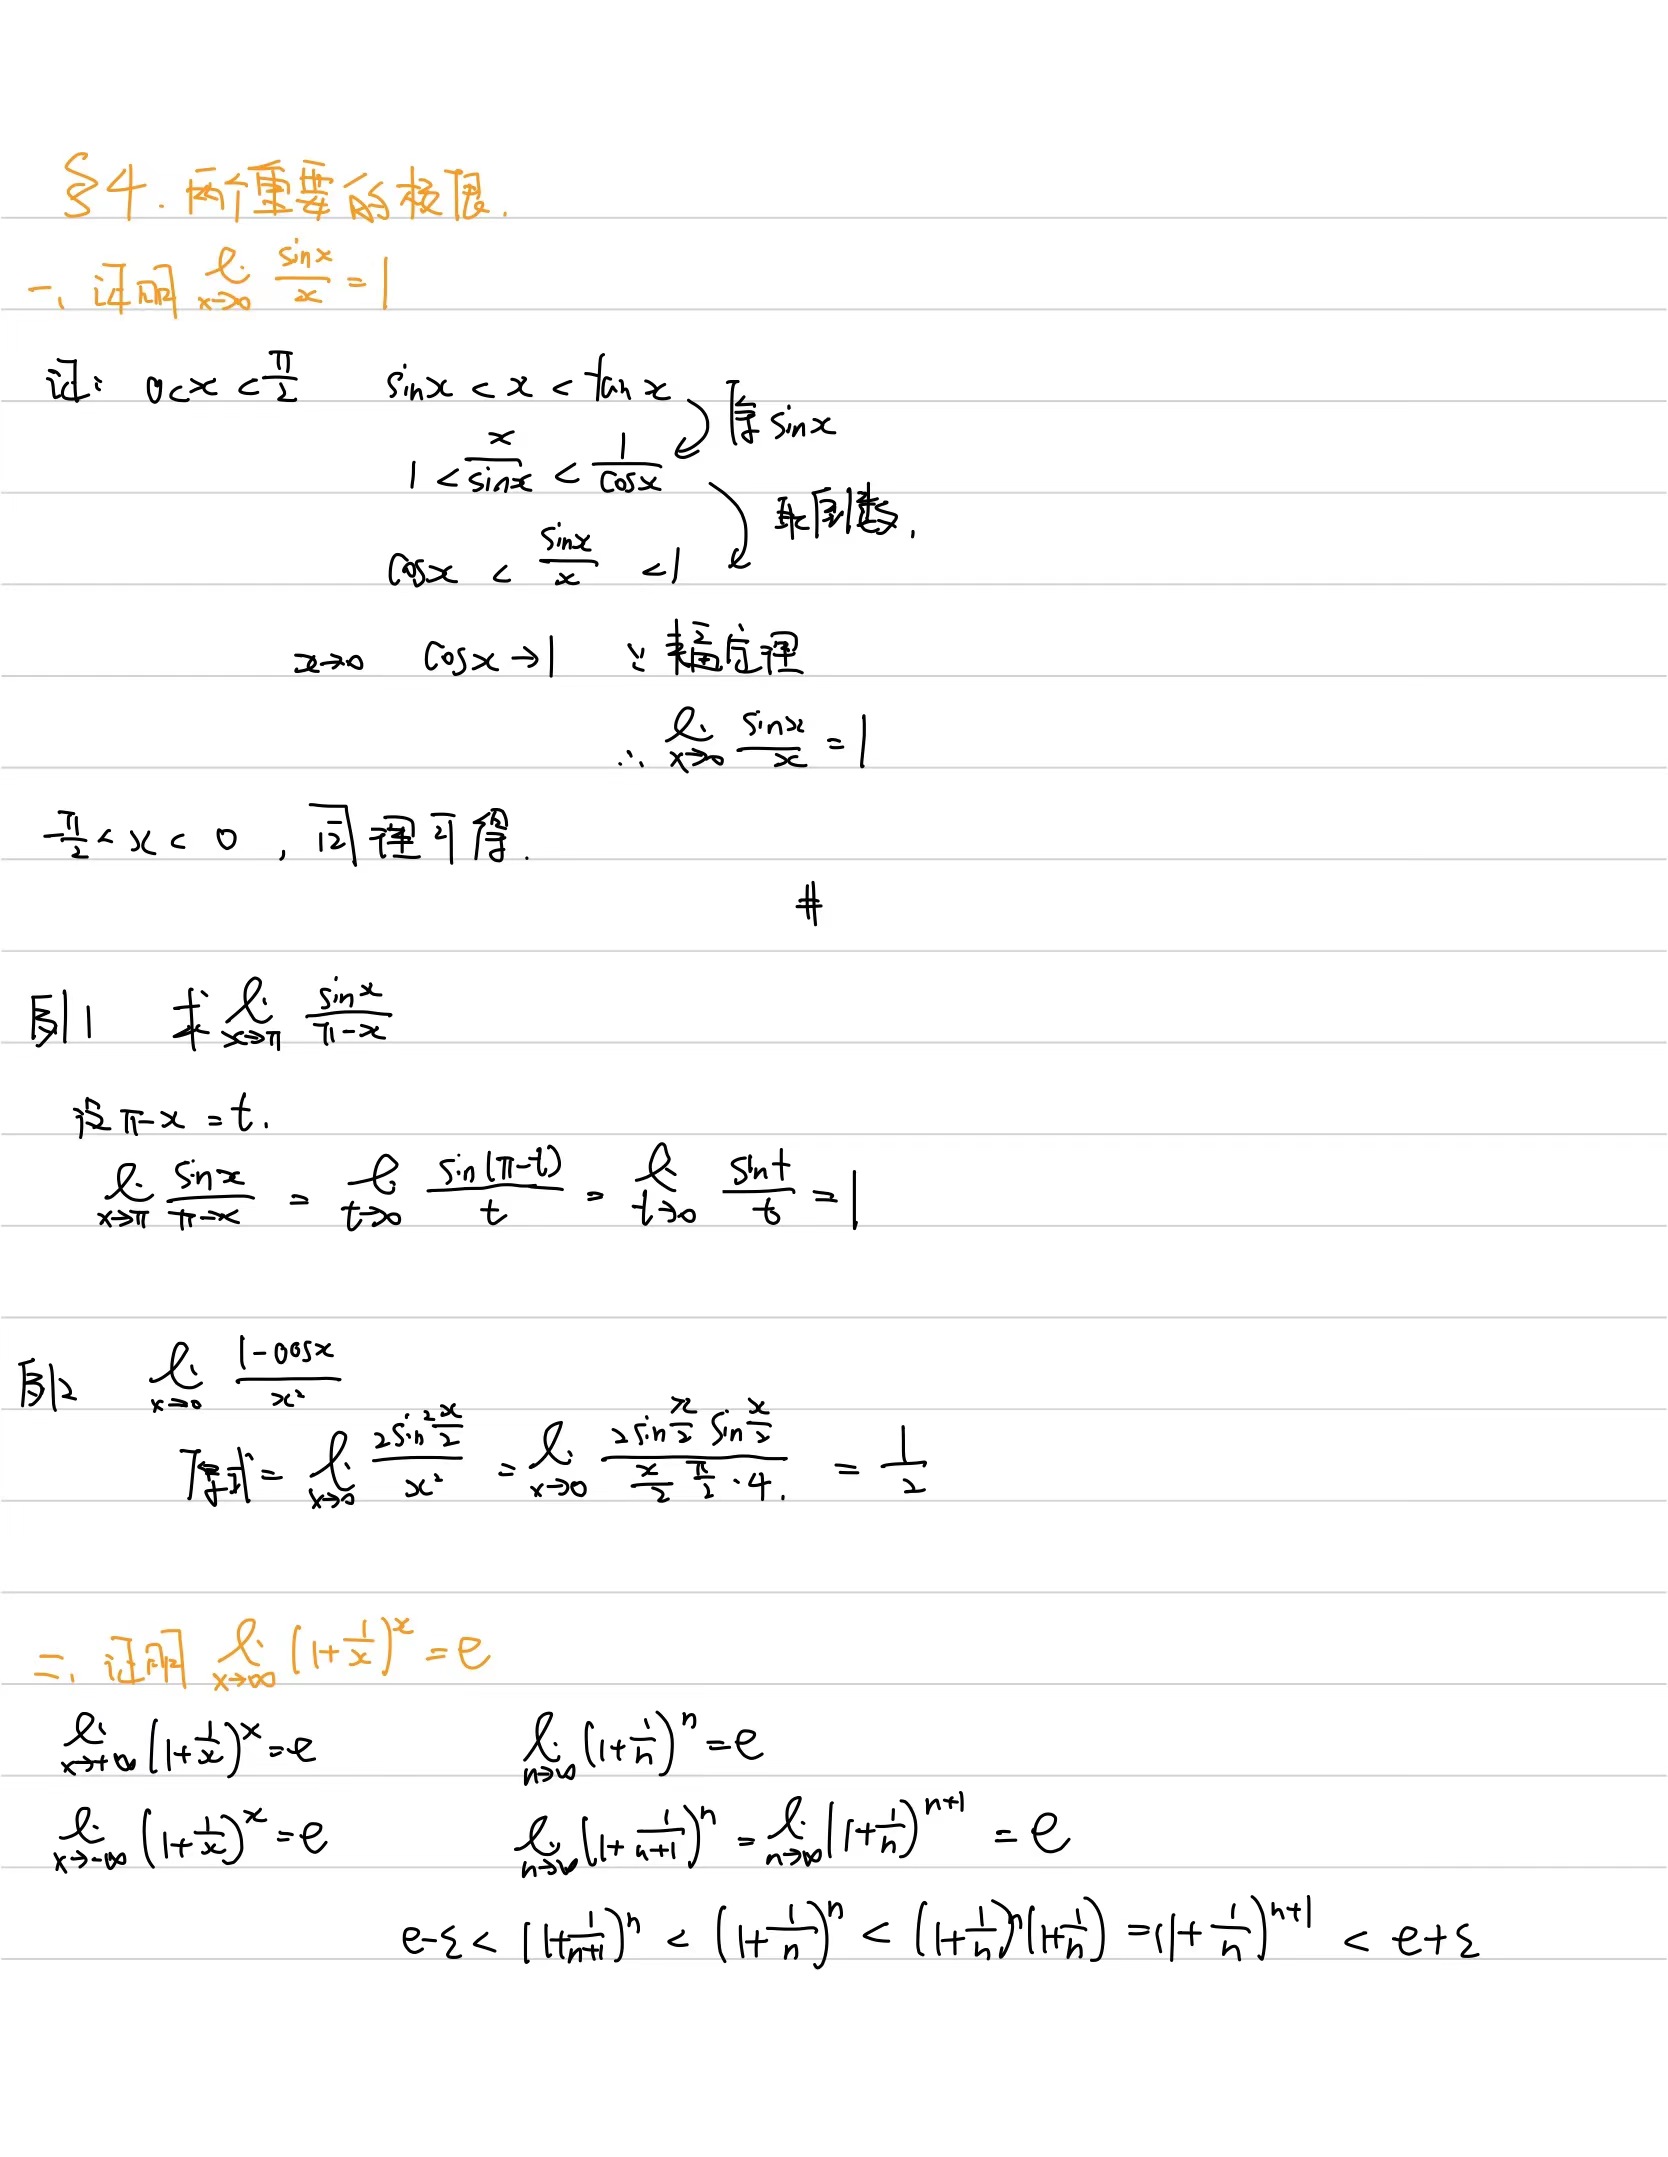 §4. 两个重要的极限.
一、证明 lim x→0 sinx/x = 1
证: 0<x<π/2 sinx < x < tanx
除sinx
1 < x/sinx < 1/cosx
取倒数.
cosx < sinx/x < 1
x→0 cosx→1 ∵ 夹逼定理
∴ lim x→0 sinx/x = 1
-π/2 < x < 0 , 同理可得.
#
例1 求 lim x→π sinx/(π-x)
设 π-x = t.
lim x→π sinx/(π-x) = lim t→0 sin(π-t)/t = lim t→0 sint/t = 1
例2 lim x→0 (1-cosx)/x²
原式 = lim x→0 2sin²(x/2)/x² = lim x→0 (2sin(x/2) sin(x/2))/(x/2 · x/2 · 4) = 1/2
二、证明 lim x→∞ (1+1/x)^x = e
lim x→+∞ (1+1/x)^x = e lim n→∞ (1+1/n)^n = e
lim x→-∞ (1+1/x)^x = e lim n→∞ (1+1/(n+1))^n = lim n→∞ (1+1/n)^(n+1) = e
e-ε < (1+1/(n+1))^n < (1+1/n)^n < (1+1/n)^n (1+1/n) = (1+1/n)^(n+1) < e+ε